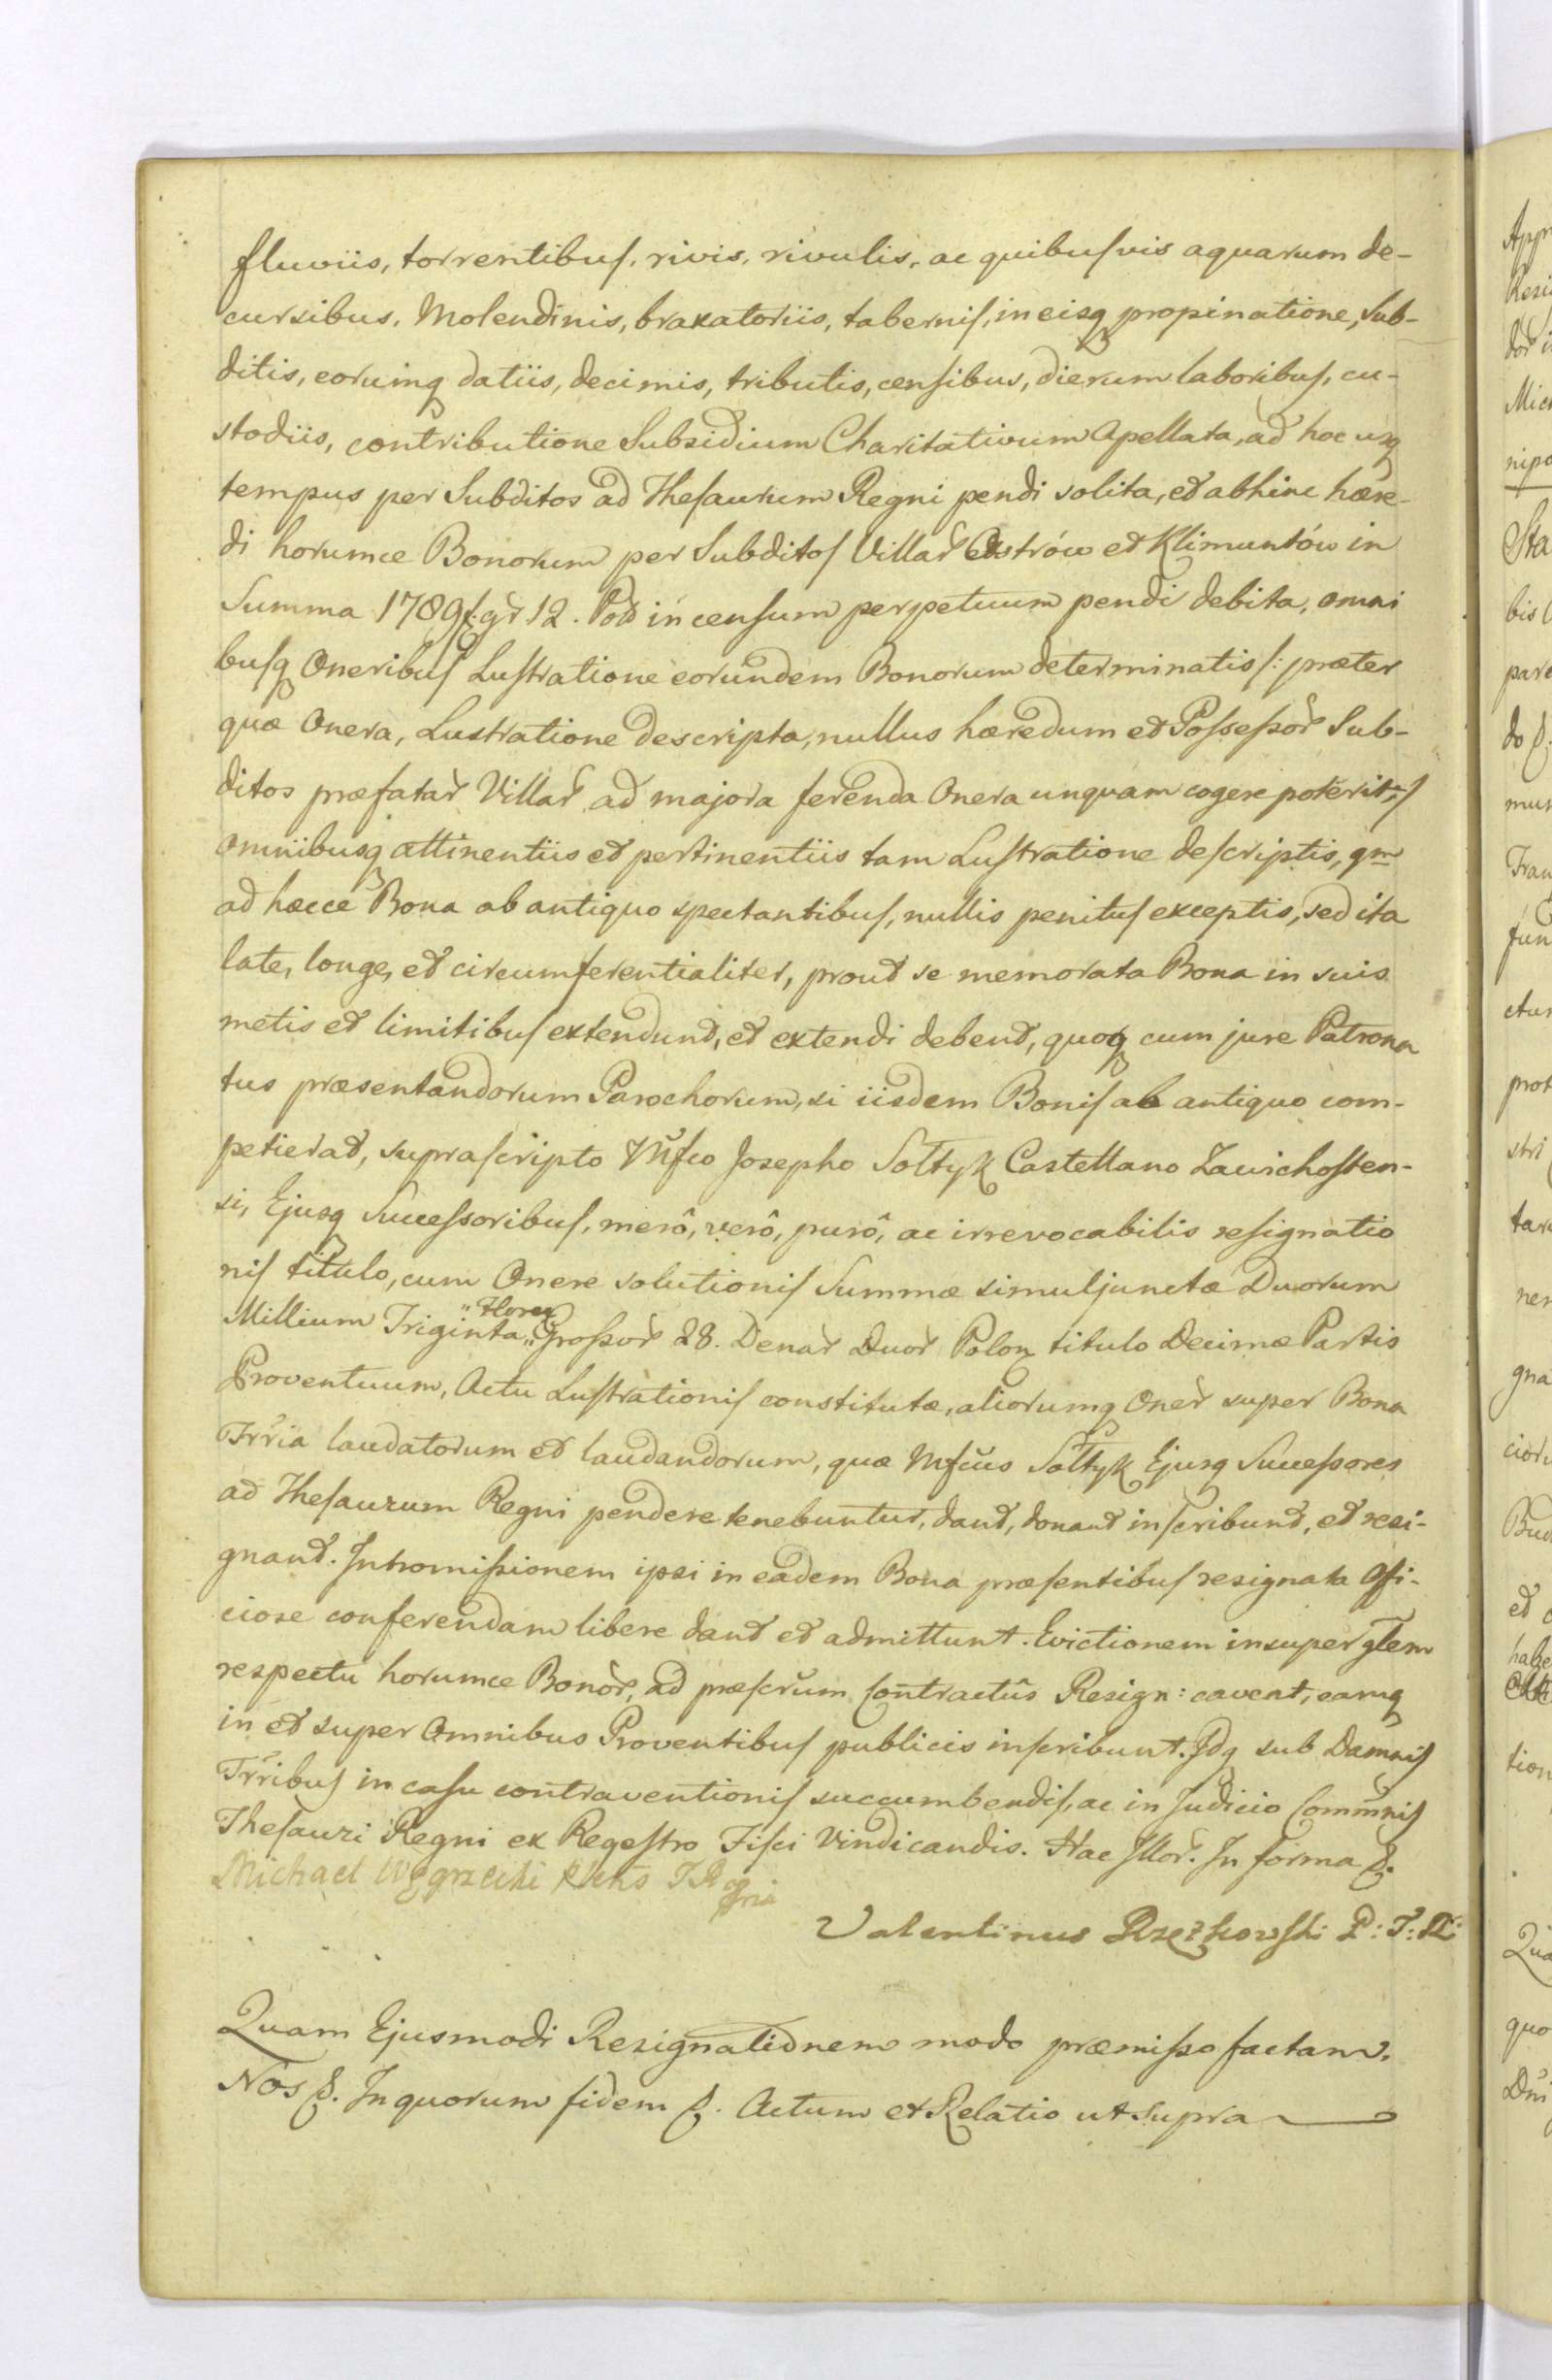 fluviis, torrentibus, rivis, rivulis, ac quibusvis aquarum de-
cursibus, Molendinis, braxatoriis, tabernis, in eisq propinatione, Sub-
ditis, eorumq datiis, decimis, tributis, censibus, dierum laboribus, cu-
stodiis, contributione Subsidium Charitativum Apellata, ad hoc usq
tempus per Subditos ad Thesaurum Regni pendi solita, et abhinc hære-
di horumce Bonorum per Subditos Villar Ostrów et Klimuntów in
Summa 1789 f. gr 12. Pol in censum perpetuum pendi debita, omni
busq Oneribus Lustratione eorundem Bonorum determinatis /: præter
quæ Onera, Lustratione descripta, nullus hæredum et Possessor Sub-
ditos præfatar Villar ad majora ferenda Onera unquam cogere poterit :/
omniibusq attinentiis et pertinentiis tam Lustratione descriptis, qm
ad hæcce Bona ab antiquo spectantibus, nullis penitus exceptis, sed ita
late, longe, et circumferentialiter, prout se memorata Bona in suis
metis et limitibus extendunt, et extendi debent, quoq cum jure Patrona
tus præsentandorum Parochorum, si iisdem Bonis ab antiquo com-
petierat, suprascripto Mfco Josepho Sołtyk Castellano Zawichosten-
si, Ejusq Successoribus, merô, verô, purô, ac irrevocabilis resignatio
nis titulo, cum Onere solutionis Summæ simuljunctæ Duorum
Millium Triginta "Floren" Grossor 28. Denar Duor Polon titulo Decimæ Partis
Proventuum, Actu Lustrationis constitutæ, aliorumq Oner super Bona
Trria laudatorum et laudandorum, quæ Mfcus Sołtyk Ejusq Successores
ad Thesaurum Regni pendere tenebuntur, dant, donant inscribunt, et resi-
gnant. Intromissionem ipsi in eadem Bona præsentibus resignata Offi-
ciose conferendam libere dant et admittunt. Evictionem insuper glem
respectu horumce Bonor, ad præscrum Contractûs Resign: cavent, eamq
in et super Omnibus Proventibus publicis inscribunt. Idq sub Damnis
Trribus in casu contraventionis succumbendis, ac in Judicio Commnis
Thesauri Regni ex Regestro Fisci Vindicandis. Hac Illor. In forma &.
Michael Węgrzecki
Valentinus Rzętkowski P: T: R:
Quam Ejusmodi Resignationem modo præmisso factam.
Nos &. In quorum fidem &. Actum et Relatio ut supra